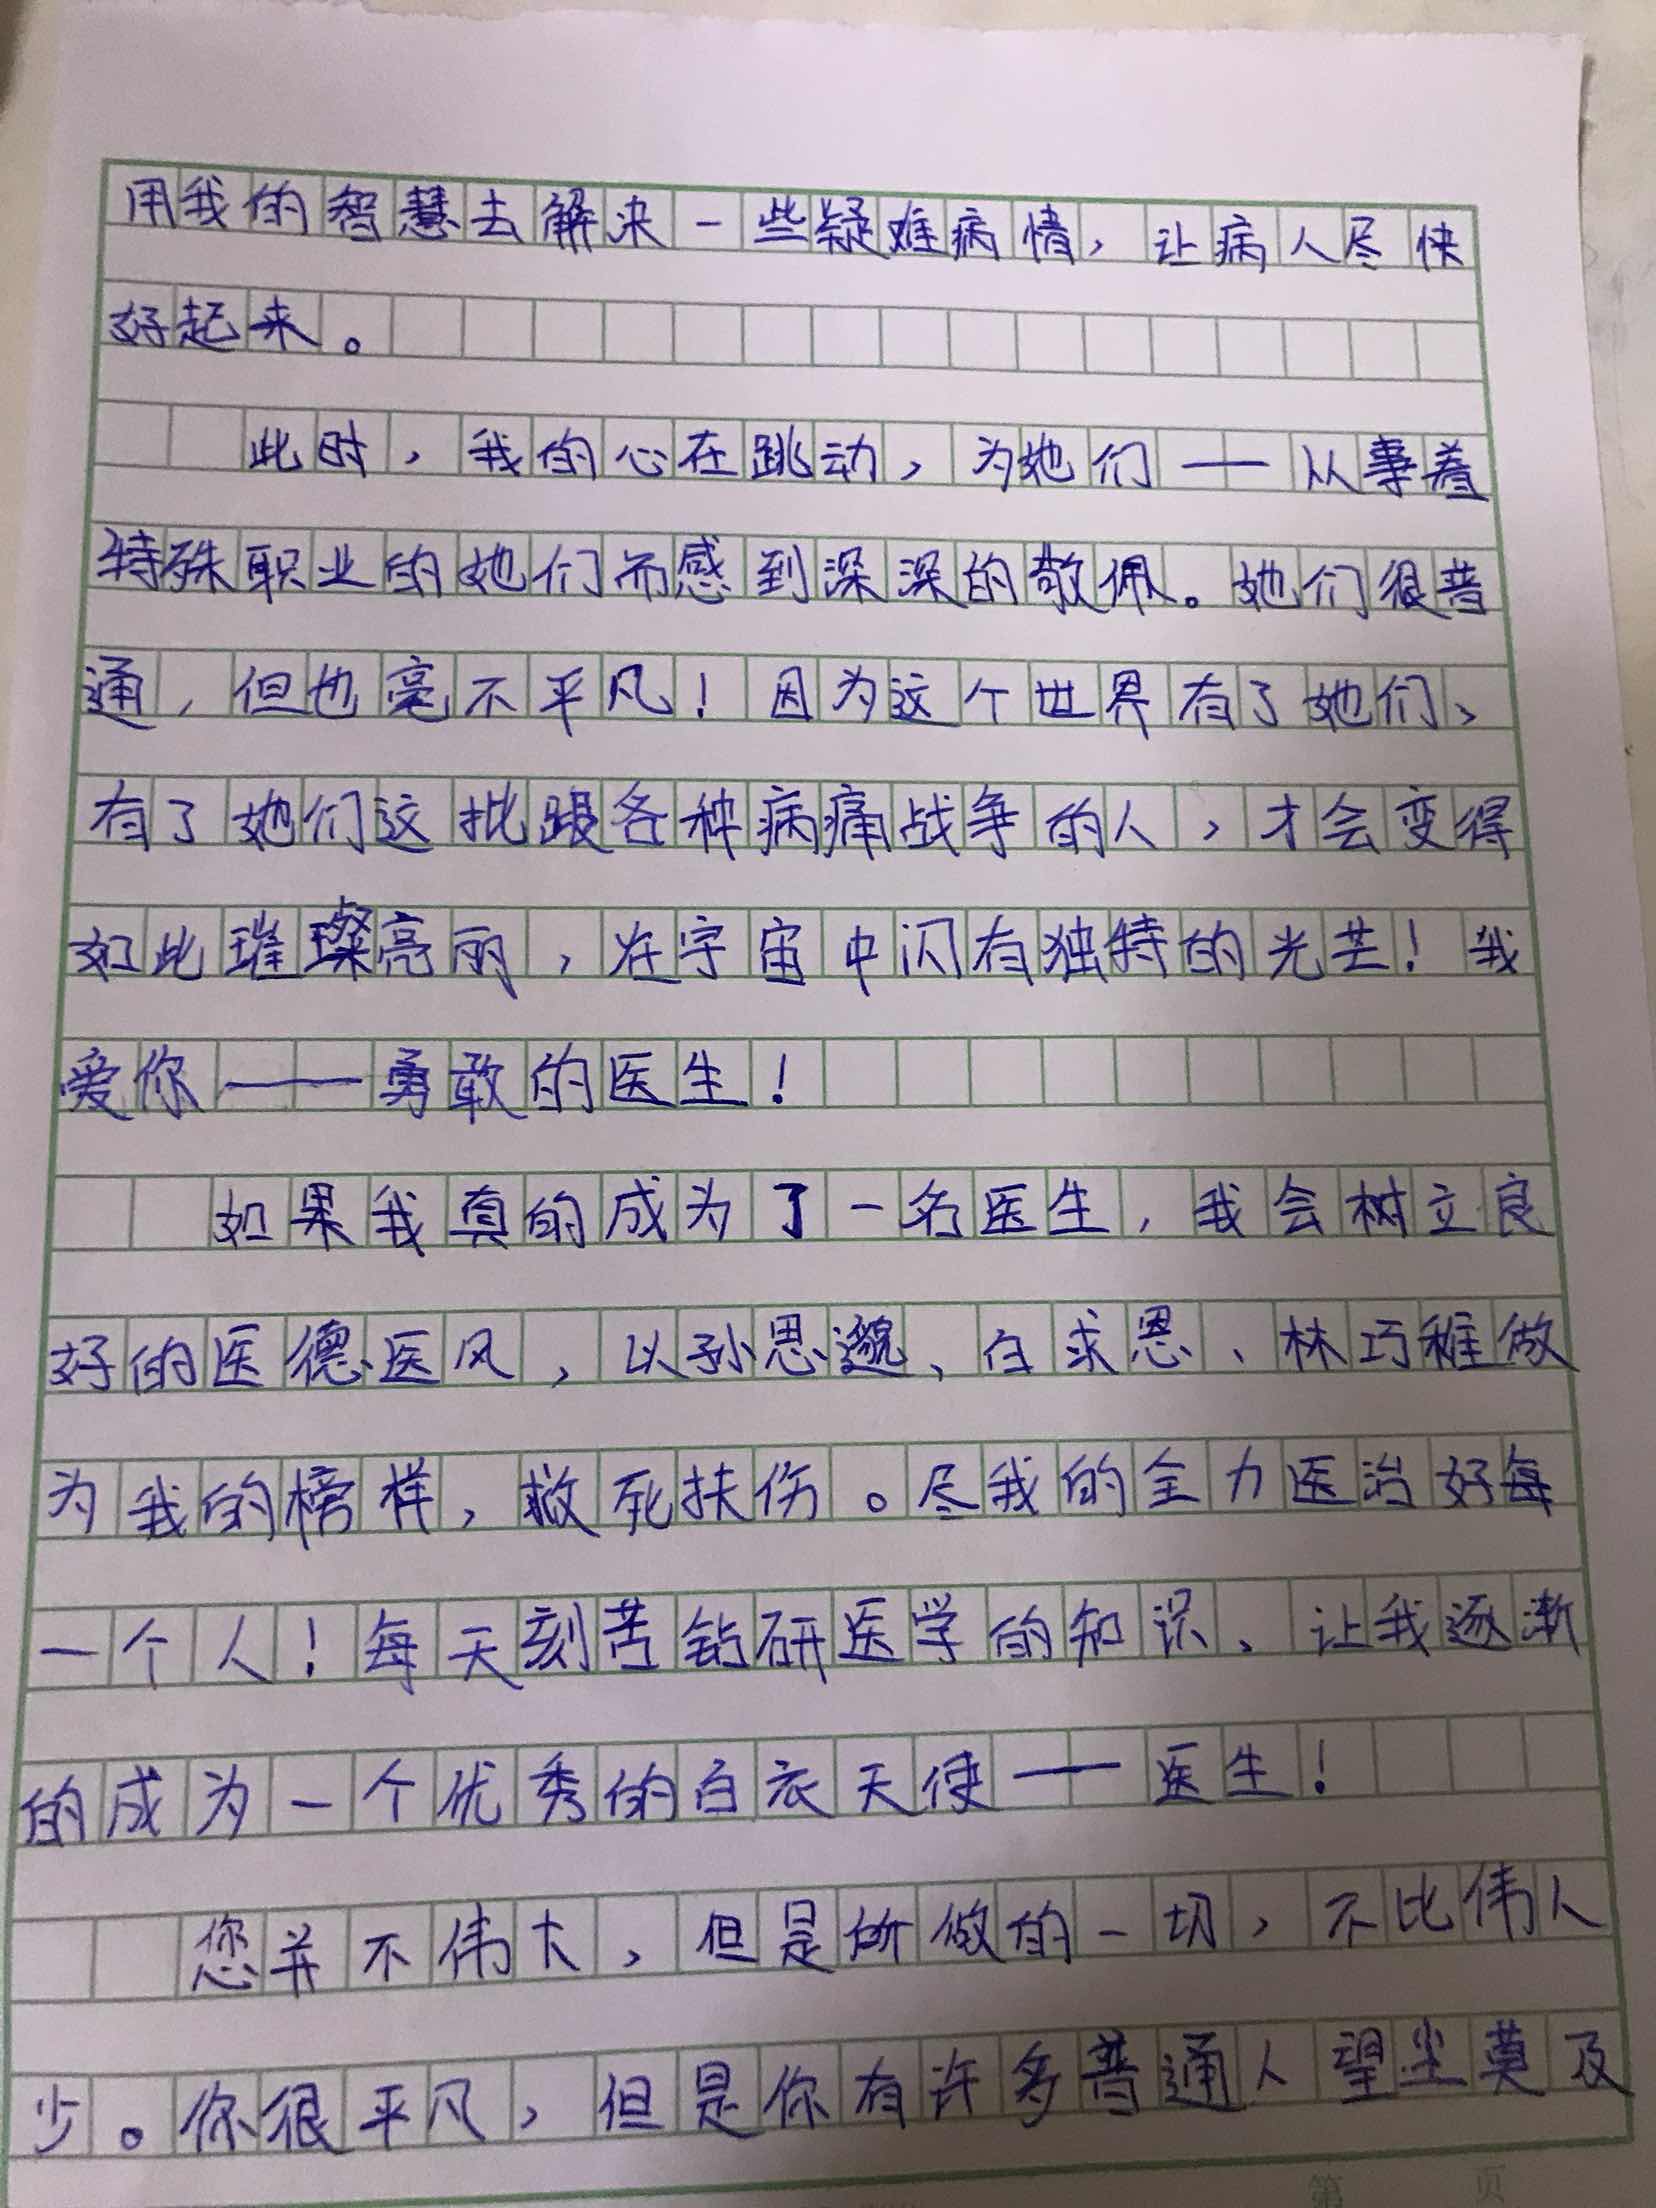 用我的智慧去解决一些疑难病情，让病人尽快
好起来。
此时，我的心在跳动，为她们——从事着
特殊职业的她们而感到深深的敬佩。她们很普
通，但也毫不平凡！因为这个世界有了她们、
有了她们这批跟各种病痛战争的人，才会变得
如此璀璨亮丽，在宇宙中闪有独特的光芒！我
爱你——勇敢的医生！
如果我真的成为了一名医生，我会树立良
好的医德医风，以孙思邈、白求恩、林巧稚做
为我的榜样，救死扶伤。尽我的全力医治好每
一个人！每天刻苦钻研医学的知识、让我逐渐
的成为一个优秀的白衣天使——医生！
您并不伟大，但是所做的一切，不比伟人
少。你很平凡，但是你有许多普通人望尘莫及
第 页